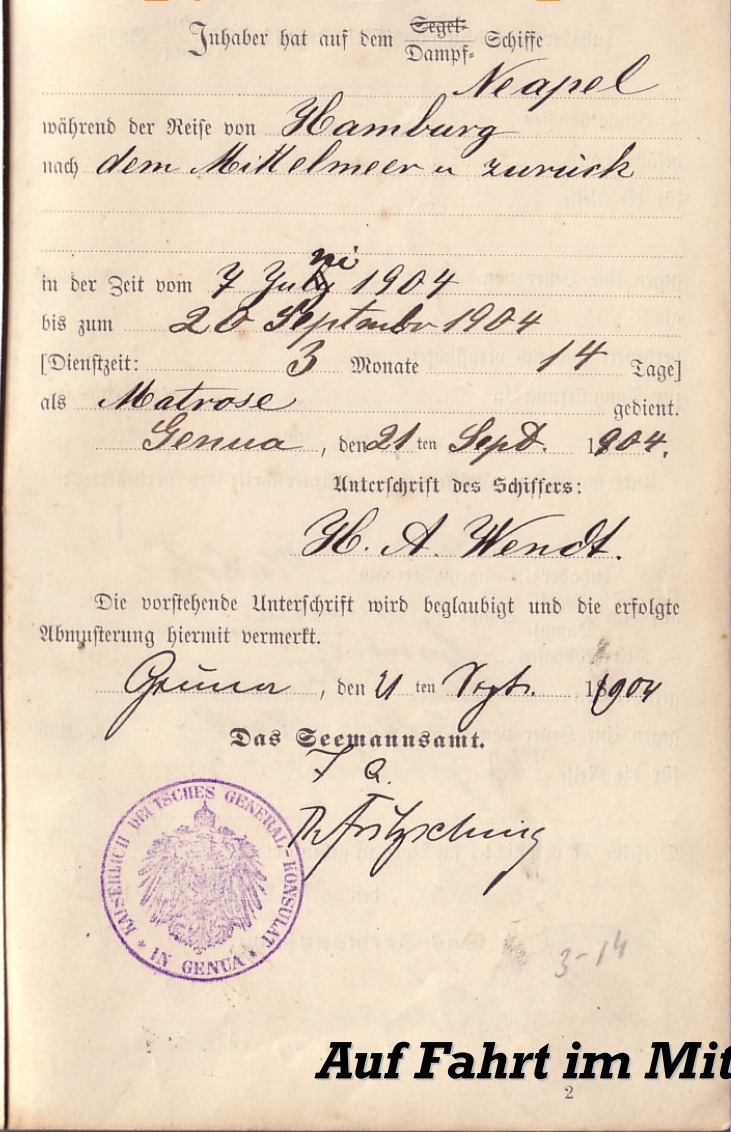 Inhaber hat auf dem Segel- Dampf- Schiffe
Neapel
während der Reise von Hamburg
nach dem Mittelmeer u zurück
in der Zeit vom 7 Juni 1904
bis zum 20 September 1904
[Dienstzeit: 3 Monate 14 Tage]
als Matrose gedient.
Genua, den 21 ten Sept. 1904.
Unterschrift des Schiffers:
H. A. Wendt.
Die vorstehende Unterschrift wird beglaubigt und die erfolgte
Abmusterung hiermit vermerkt.
Genua, den 21 ten Sept. 1904
Das Seemannsamt.
I. A.
KAISERLICH DEUTSCHES GENERAL-KONSULAT
* IN GENUA *
3-14
Auf Fahrt im Mit
2